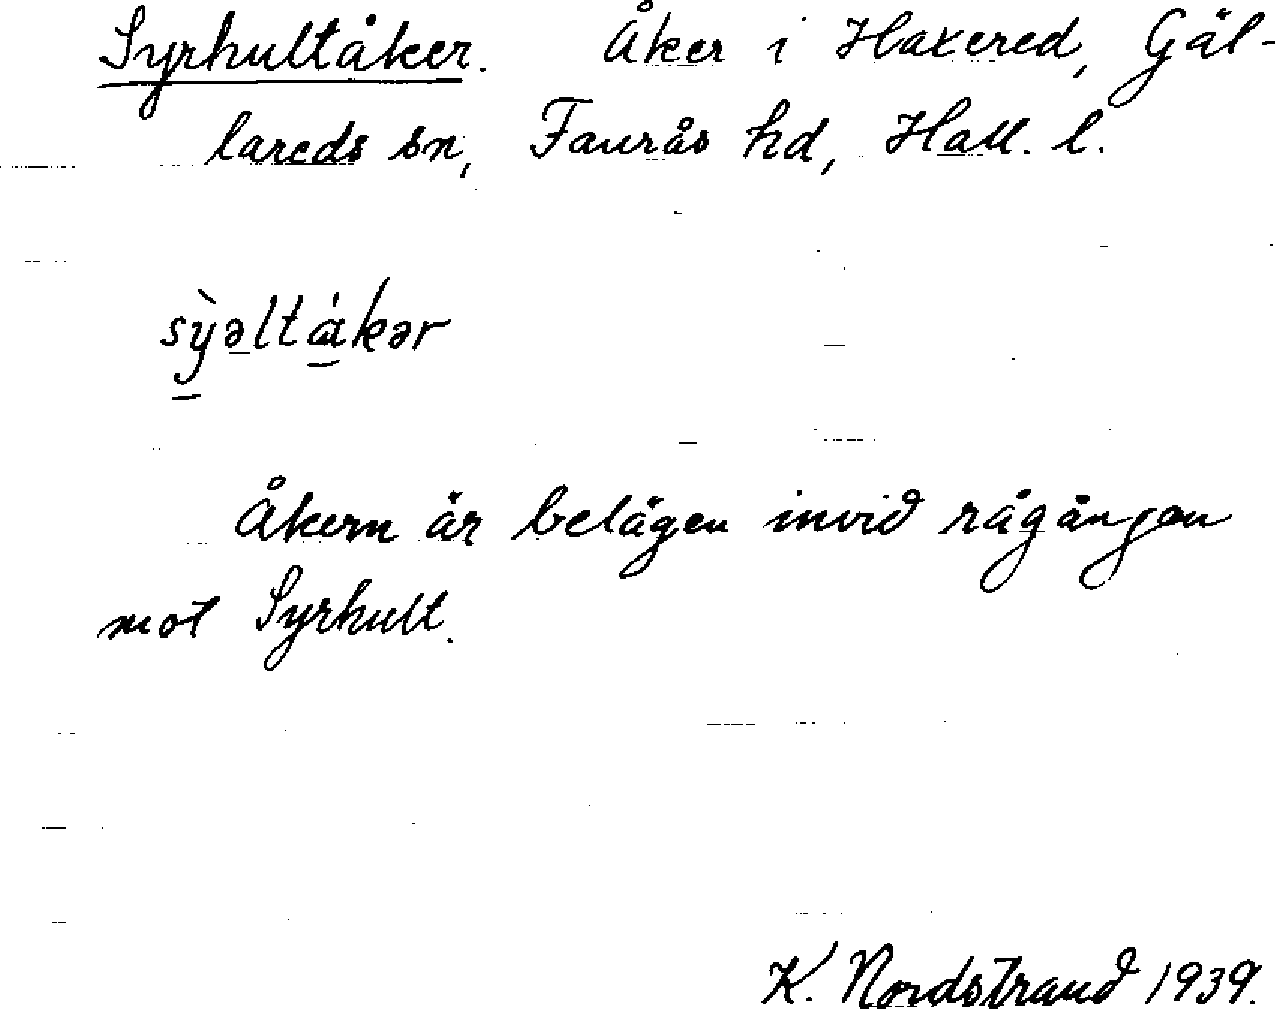 Syrhultåker. Åker i Haxered, Gäl-
lareds sn, Faurås hd, Hall. l.
sỳəltákər
Åkern är belägen invid rågången
mot Syrhult.
K. Nordstrand 1939.